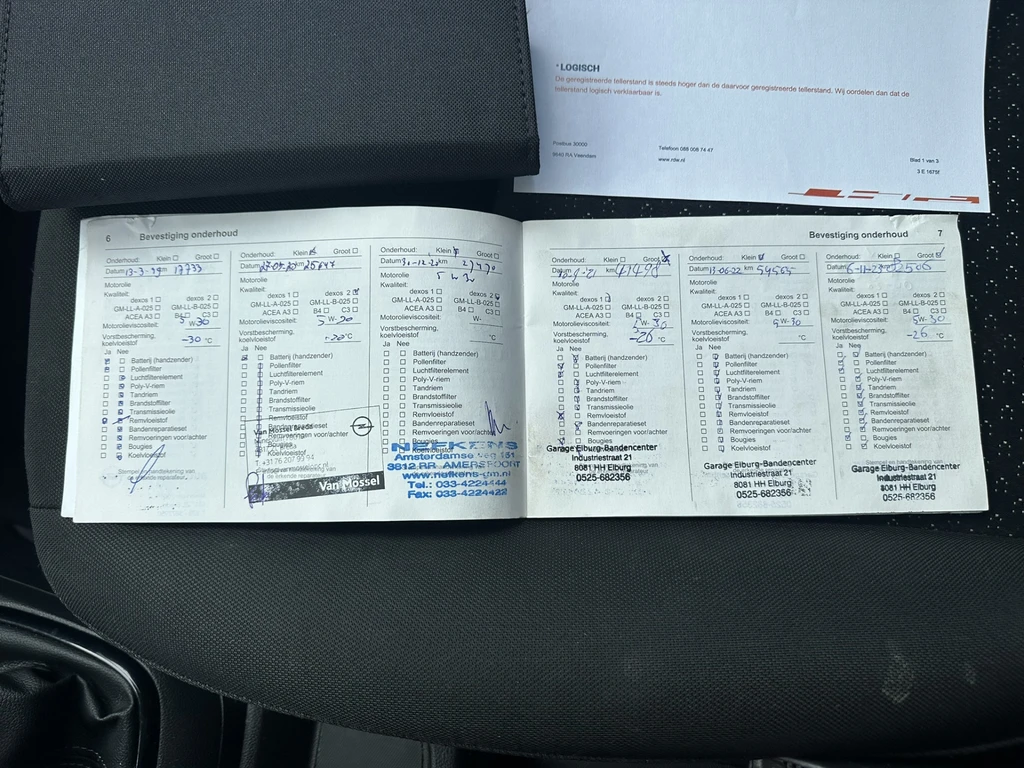 * LOGISCH
De geregistreerde tellerstand is steeds hoger dan de daarvoor geregistreerde tellerstand. Wij oordelen dan dat de
tellerstand logisch verklaarbaar is.
Postbus 30000
9640 RA Veendam
Telefoon 088 008 74 47
www.rdw.nl
Blad 1 van 3
3 E 1675f
6 Bevestiging onderhoud
Onderhoud: Klein Groot
Datum 13-3-19 km 17733
Motorolie
Kwaliteit:
dexos 1 dexos 2
GM-LL-A-025 GM-LL-B-025
ACEA A3 B4 C3
Motorolieviscositeit: 5 W-30
Vorstbescherming,
koelvloeistof -30 °C
Ja Nee
Batterij (handzender)
Pollenfilter
Luchtfilterelement
Poly-V-riem
Tandriem
Brandstoffilter
Transmissieolie
Remvloeistof
Bandenreparatieset
Remvoeringen voor/achter
Bougies
Koelvloeistof
Stempel en handtekening van
de erkende reparateur
Onderhoud: Klein Groot
Datum km
Motorolie
Kwaliteit:
dexos 1 dexos 2
GM-LL-A-025 GM-LL-B-025
ACEA A3 B4 C3
Motorolieviscositeit: 5 W-30
Vorstbescherming,
koelvloeistof -20 °C
Ja Nee
Batterij (handzender)
Pollenfilter
Luchtfilterelement
Poly-V-riem
Tandriem
Brandstoffilter
Transmissieolie
Remvloeistof
Bandenreparatieset
Remvoeringen voor/achter
Bougies
Koelvloeistof
Van Mossel
Onderhoud: Klein Groot
Datum km
Motorolie 5 W 30
Kwaliteit:
dexos 1 dexos 2
GM-LL-A-025 GM-LL-B-025
ACEA A3 B4 C3
Motorolieviscositeit: W-
Vorstbescherming,
koelvloeistof °C
Ja Nee
Batterij (handzender)
Pollenfilter
Luchtfilterelement
Poly-V-riem
Tandriem
Brandstoffilter
Transmissieolie
Remvloeistof
Bandenreparatieset
Remvoeringen voor/achter
Bougies
Koelvloeistof
NEFKENS
Amsterdamse weg
3812 RR AMERSFOORT
www.nefkens-gm.nl
Tel.: 033-4224444
Fax: 033-4224422
Bevestiging onderhoud 7
Onderhoud: Klein Groot
Datum km 41498
Motorolie
Kwaliteit:
dexos 1 dexos 2
GM-LL-A-025 GM-LL-B-025
ACEA A3 B4 C3
Motorolieviscositeit: 5W-30
Vorstbescherming,
koelvloeistof -26 °C
Ja Nee
Batterij (handzender)
Pollenfilter
Luchtfilterelement
Poly-V-riem
Tandriem
Brandstoffilter
Transmissieolie
Remvloeistof
Bandenreparatieset
Remvoeringen voor/achter
Bougies
Koelvloeistof
Garage Elburg-Bandencenter
Industriestraat 21
8081 HH Elburg
0525-682356
Onderhoud: Klein Groot
Datum 13-06-22 km 54565
Motorolie
Kwaliteit:
dexos 1 dexos 2
GM-LL-A-025 GM-LL-B-025
ACEA A3 B4 C3
Motorolieviscositeit: 5W-30
Vorstbescherming,
koelvloeistof °C
Ja Nee
Batterij (handzender)
Pollenfilter
Luchtfilterelement
Poly-V-riem
Tandriem
Brandstoffilter
Transmissieolie
Remvloeistof
Bandenreparatieset
Remvoeringen voor/achter
Bougies
Koelvloeistof
Garage Elburg-Bandencenter
Industriestraat 21
8081 HH Elburg
0525-682356
Onderhoud: Klein Groot
Datum
Motorolie
Kwaliteit:
dexos 1 dexos 2
GM-LL-A-025 GM-LL-B-025
ACEA A3 B4 C3
Motorolieviscositeit: 5W-30
Vorstbescherming,
koelvloeistof -26 °C
Ja Nee
Batterij (handzender)
Pollenfilter
Luchtfilterelement
Poly-V-riem
Tandriem
Brandstoffilter
Transmissieolie
Remvloeistof
Bandenreparatieset
Remvoeringen voor/achter
Bougies
Koelvloeistof
Garage Elburg-Bandencenter
Industriestraat 21
8081 HH Elburg
0525-682356